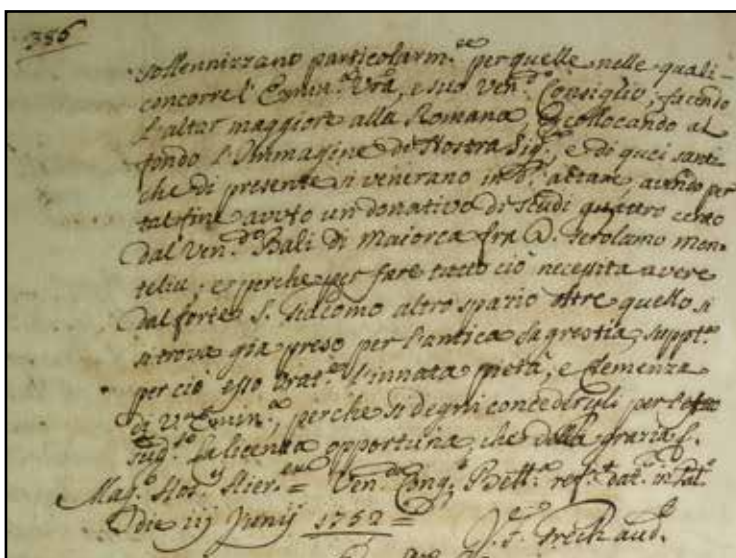 386
sollennizzano particolarm.te per quelle nelle quali
concorre l'Emin.za Vra, e suo Ven.do Consiglio, facendo
l'altar maggiore alla Romana, e collocando al
fondo l'Immagine di Nostra Sig.ra, e di quei santi
che di presente si venerano in d.o altare, avendo per
tal fine avuto un donativo di scudi quattro cento
dal Ven.do Bali di Maiorca fra D. Gerolamo mon=
teliu; e perche per fare tutto ciò necessita avere
dal forte S. Giacomo altro spazio oltre quello si
si trova già preso per l'antica sagrestia, suppl.ca
per ciò esso Orat.e l'innata pietà, e clemenza
di V. Emin.za, perche si degni concedergli per
sud.to la licenza opportuna, che della grazia
Mag.r Hos.s Hier.= Ven.da Cong. Bett. ref.t dat. in Pal.o
die iij Junij 1752=
Grech aud.